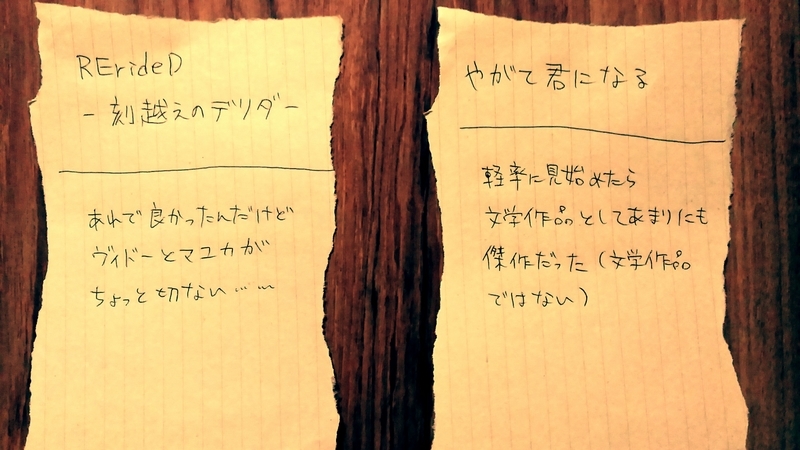 RErideD
－刻越えのデリダ－
あれで良かったんだけど
ヴィドーとマユカが
ちょっと切ない……
やがて君になる
軽率に見始めたら
文学作品としてあまりにも
傑作だった(文学作品
ではない)